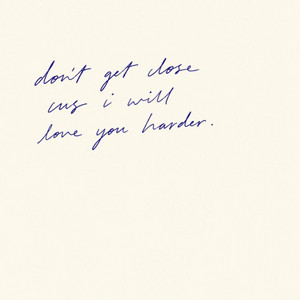 don't get close
cus i will
love you harder.